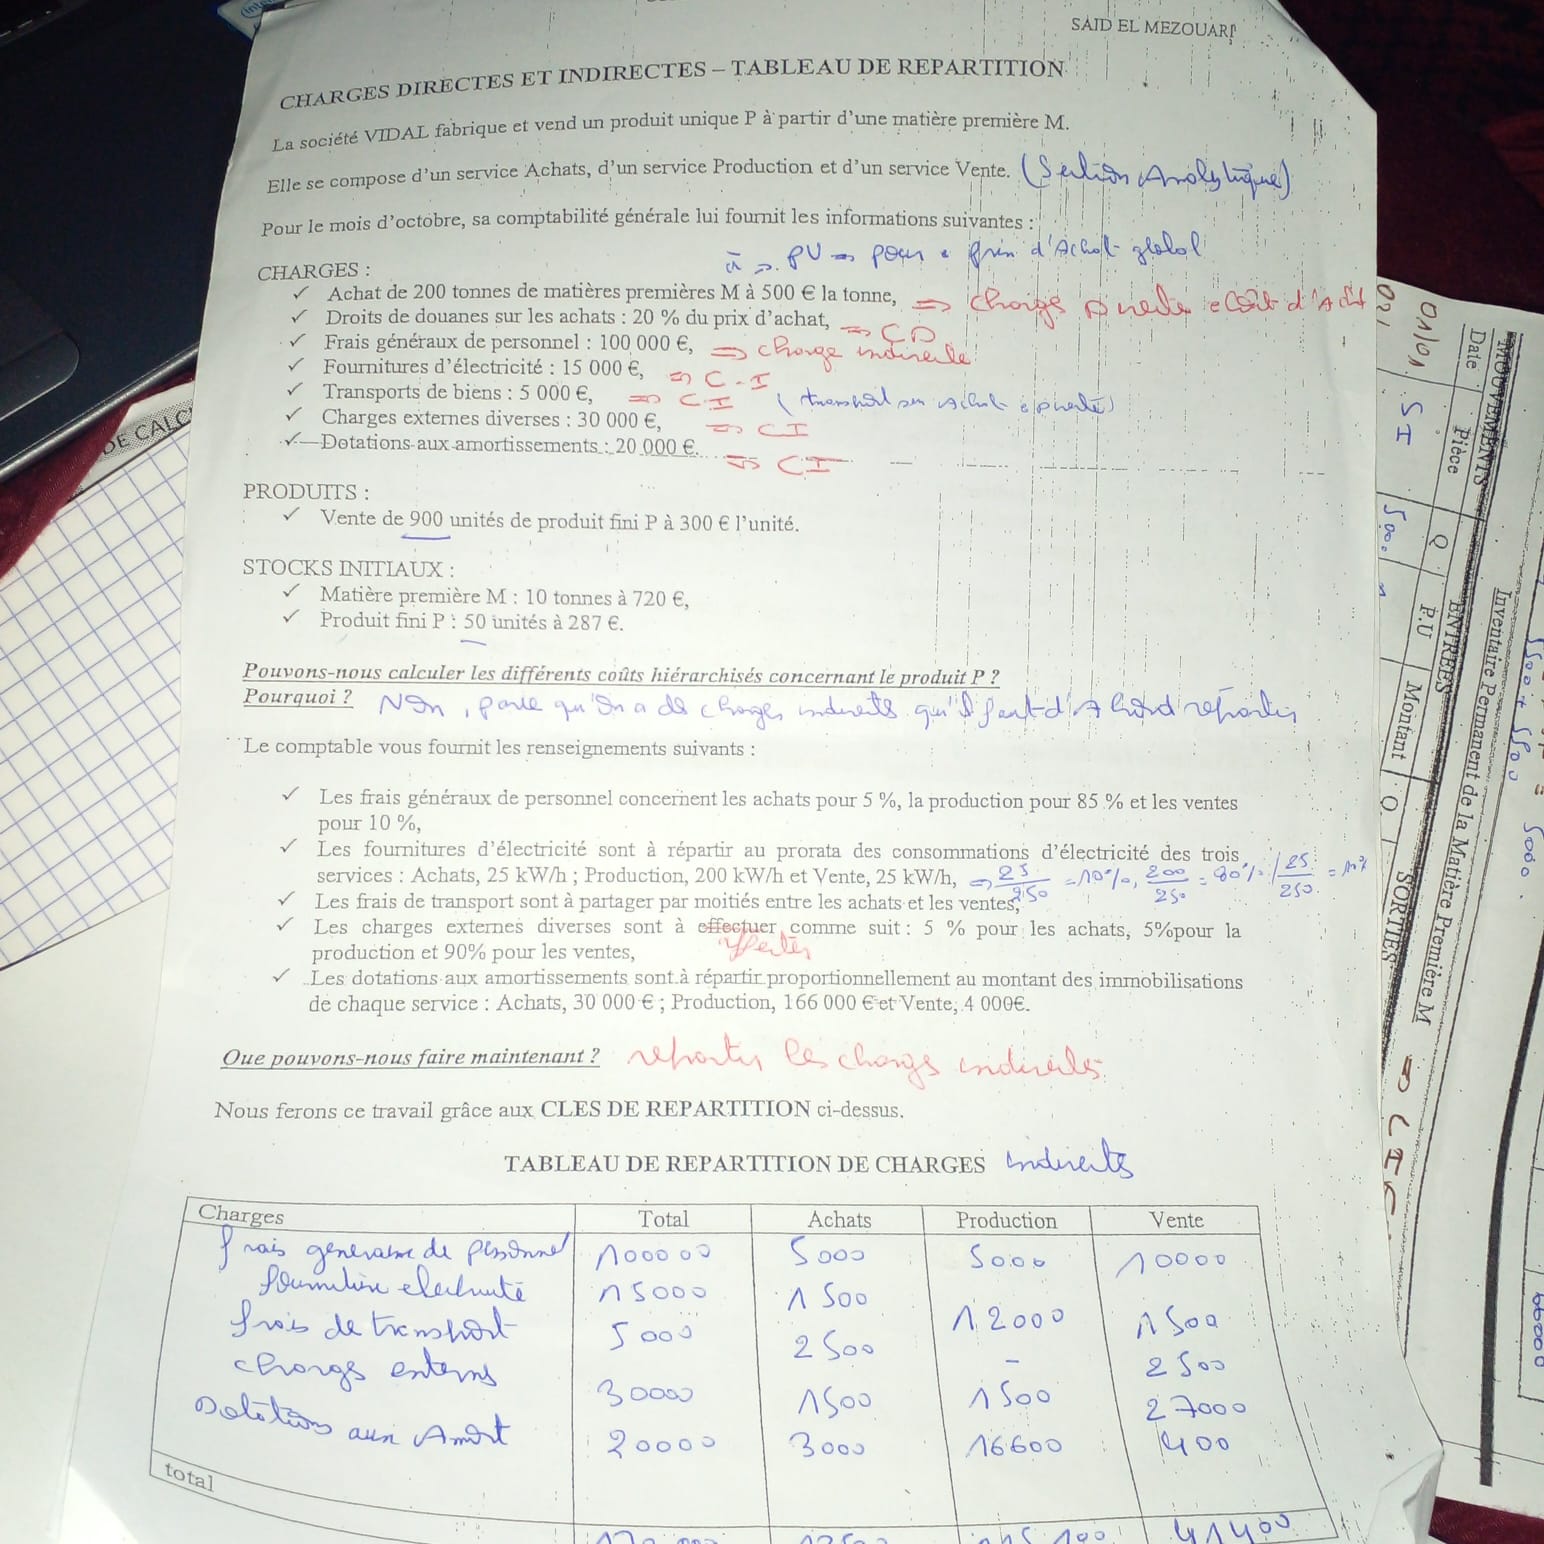 SAID EL MEZOUARI
CHARGES DIRECTES ET INDIRECTES – TABLEAU DE REPARTITION
La société VIDAL fabrique et vend un produit unique P à partir d'une matière première M.
Elle se compose d'un service Achats, d'un service Production et d'un service Vente. (Section Analytique)
Pour le mois d'octobre, sa comptabilité générale lui fournit les informations suivantes :
PU pour prix d'Achat global
CHARGES :
✓ Achat de 200 tonnes de matières premières M à 500 € la tonne, => charge d'Achat
✓ Droits de douanes sur les achats : 20 % du prix d'achat, => CD
✓ Frais généraux de personnel : 100 000 €, => charge indirecte
✓ Fournitures d'électricité : 15 000 €, => C-I
✓ Transports de biens : 5 000 €, => CI (transport sur Achat
✓ Charges externes diverses : 30 000 €, => CI
✓ Dotations aux amortissements : 20 000 €. => CI
PRODUITS :
✓ Vente de 900 unités de produit fini P à 300 € l'unité.
STOCKS INITIAUX :
✓ Matière première M : 10 tonnes à 720 €,
✓ Produit fini P : 50 unités à 287 €.
Pouvons-nous calculer les différents coûts hiérarchisés concernant le produit P ?
Pourquoi ? Non, parce qu'on a des charges indirects qu'il faut d'Abord répartir
Le comptable vous fournit les renseignements suivants :
✓ Les frais généraux de personnel concernent les achats pour 5 %, la production pour 85 % et les ventes
pour 10 %,
✓ Les fournitures d'électricité sont à répartir au prorata des consommations d'électricité des trois
services : Achats, 25 kW/h ; Production, 200 kW/h et Vente, 25 kW/h, => 25/250 = 10%, 200/250 = 80% / 25/250 = 10%
✓ Les frais de transport sont à partager par moitiés entre les achats et les ventes,
✓ Les charges externes diverses sont à effectuer comme suit : 5 % pour les achats, 5%pour la
affecter
production et 90% pour les ventes,
✓ Les dotations aux amortissements sont à répartir proportionnellement au montant des immobilisations
de chaque service : Achats, 30 000 € ; Production, 166 000 € et Vente, 4 000€.
Que pouvons-nous faire maintenant ? répartir les charges indirectes
Nous ferons ce travail grâce aux CLES DE REPARTITION ci-dessus.
TABLEAU DE REPARTITION DE CHARGES indirects
Charges Total Achats Production Vente
frais generaux de personnel 100000 5000 5000 10000
fourniture electricité 15000 1500 12000 1500
frais de transport 5000 2500 - 2500
charges externes 30000 1500 1500 27000
Dotations aux Amort 20000 3000 16600 400
total 41400
DE CALC
MOUVEMENTS
Date Pièce
01/01 SI
Inventaire Permanent de la Matière Première M
ENTREES SORTIES
Q P.U Montant Q